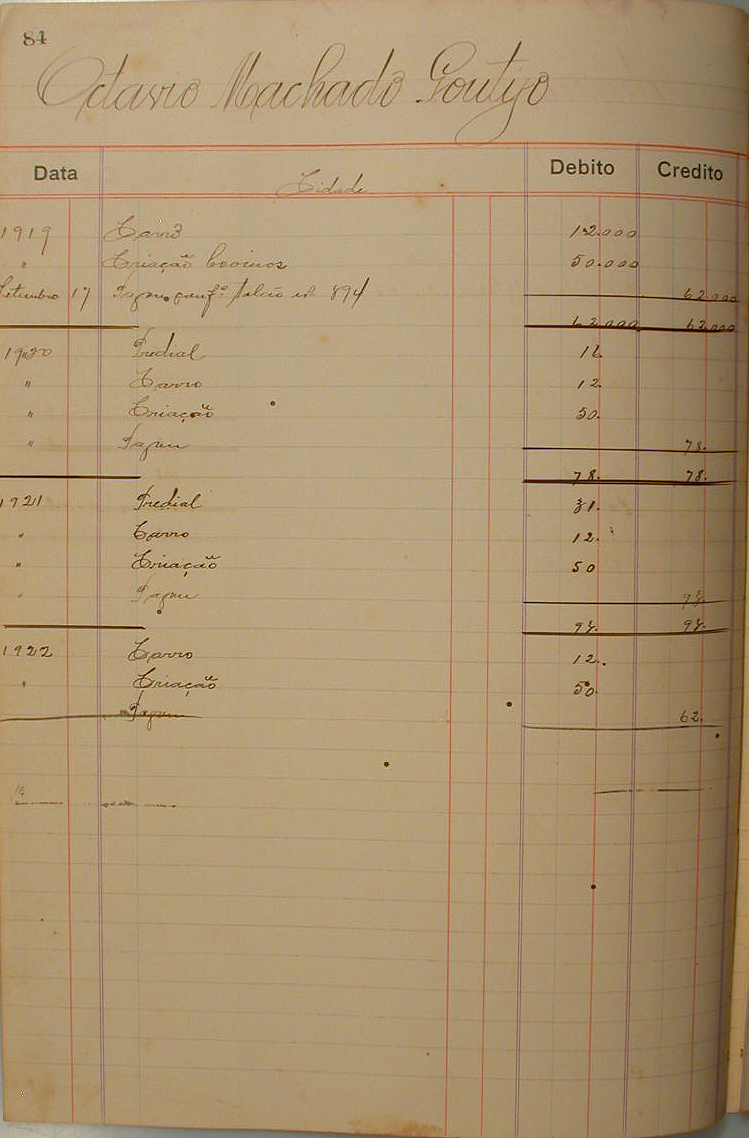 84
Octavio Machado
Data Cidade Debito Credito
1919 Carro 12.000
" Criação bovinos 50.000
Setembro 17 Pagou conf.e nº 894 62.000
62.000 62.000
1920 Predial
" Carro 12.
" Criação 50.
" Pagou 78.
78. 78.
1921 Predial 31.
" Carro 12.
" Criação 50
" Pagou
1922 Carro 12.
" Criação 50.
Pagou 62.